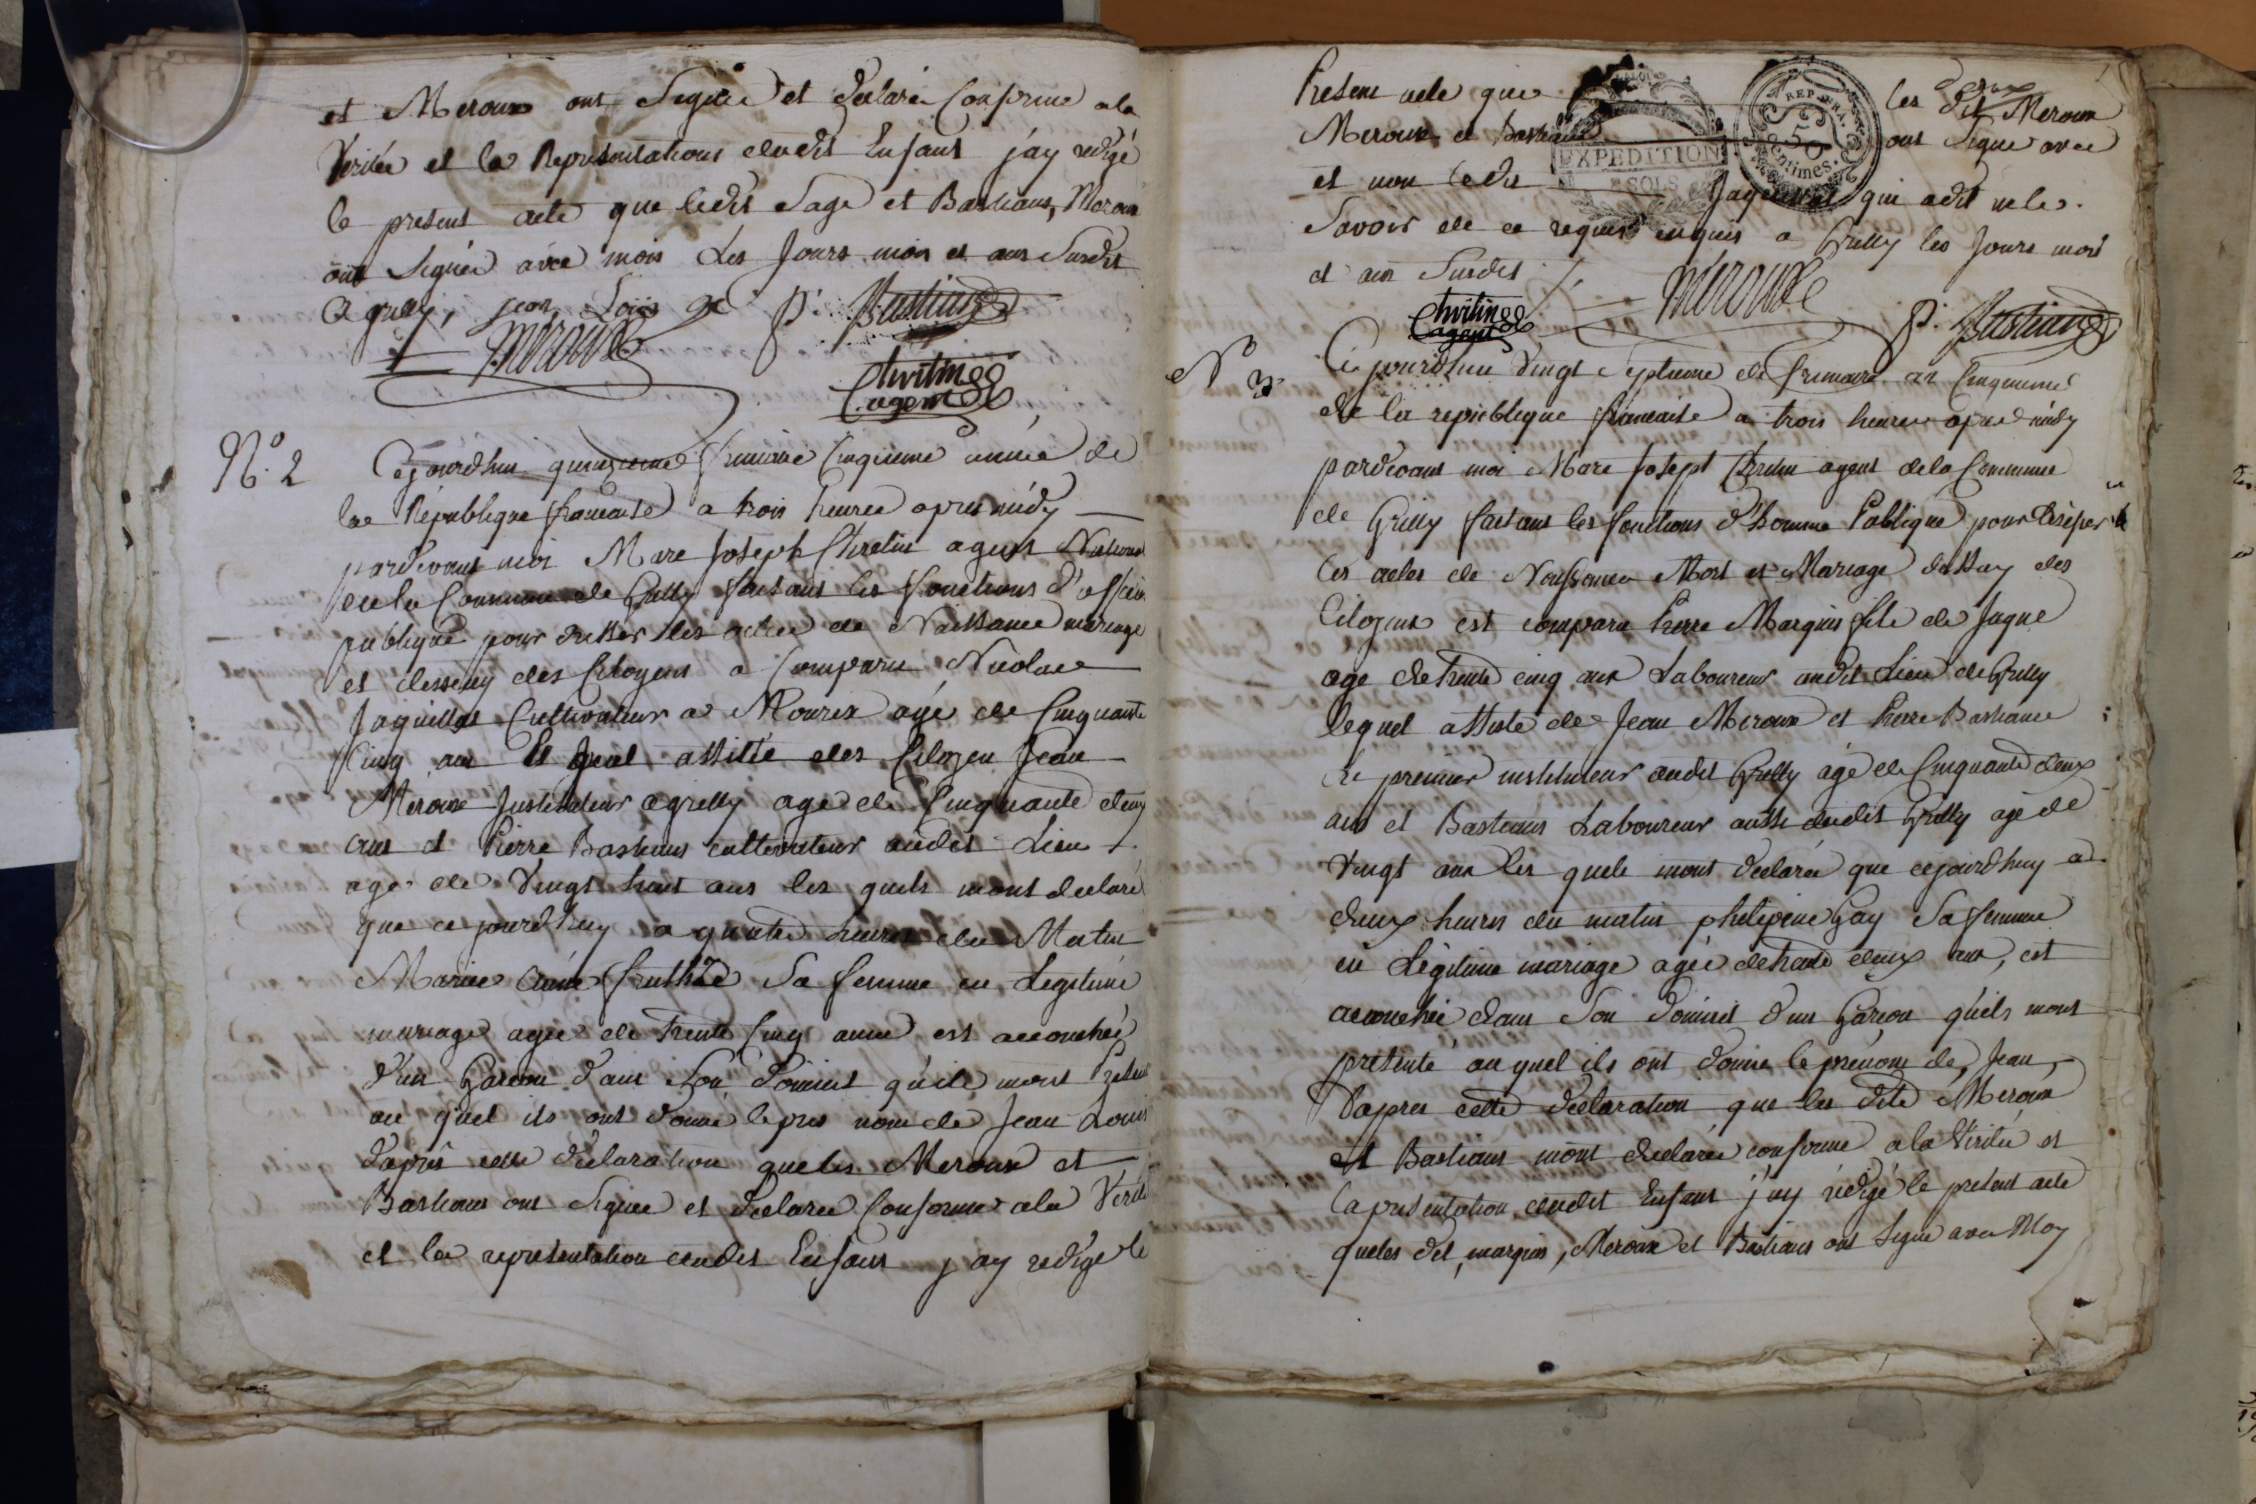 et Meroux ont Signée et declarée Conforme a la
Veritée et la Representations dudit Enfant j'ay redigé
le present acte que ledit Sage et Bastians, Meroux
ont Signée avec mois Les Jours mois et ans Susdit
a grilly, jean Loüis P. Bastians
Meroux
Chritin
agent
N.° 2
Cejourdhui quinzieme frimaire Cinquieme année de
la République francaise a trois heures apres midy
pardevant moi Marc Joseph Chretin agent National
de la Commune de Grilly faisant les fonctions d'officier
publique pour dresser les actes de Naissance mariage
et desseay des Citoyens a Comparu Nicolas
Jaquillet Cultivateur a Mourex agé de Cinquante
Cinq ans Le quel assisté des Citoyen Jean
Meroux Instituteur a grilly age de Cinquante deux
ans et Pierre Bastians cultivateur audit Lieu
age de Vingt huit ans les quels mont declaré
que ce jourdhuy a quatre heures du Matin
Marie Sa femme en Legitime
mariage agée de trente Cinq anné est accouchée
d'un Garcon dans Son Domicil qu'ils mont
au quel ils ont donné le pres nom de Jean Louis
d'aprés cette declaration que les Meroux et
Bastians ont Signée et declarée Conforme a la Verité
et la representation dudit Enfant j'ay redigé le
Present acte que les dit Meroux
Meroux et Bastians ont Signé avec
EXPEDITION
SOLS
REP. FRA.
50
Centimes.
et non ledit Jaquillet qui a dit ne le
Savoir de ce requis enquis a Grilly les Jours mois
et an Susdit
Chritin
agent
Meroux
P. Bastians
N° 3
Ce jourdhui Vingt Septieme de frimaire an Cinquieme
de la republique francaise a trois heures apres midy
pardevant moi Marc Joseph Chretin agent de la Commune
de Grilly faisant les fonctions d'homme Publique pour
les actes de Mort et Mariage des
Citoyens est comparu Pierre Marquis fils de Jaque
age de trente cinq ans Laboureur audit Lieu de Grilly
lequel assisté de Jean Meroux et Pierre Bastians
le premier instituteur audit Grilly âgé de Cinquante deux
ans et Bastians Laboureur aussi dudit Grilly agé de
Vingt ans les quels mont declarée que cejourdhuy a
deux heures du matin phelipine Gay Sa femme
en Légitime mariage agée de trente deux ans, est
accouchée dans Son domicil d'un Garcon qu'ils mont
présenté au quel ils ont donné le prénom de, Jean,
D'apres cette déclaration que les dits Meroux
et Bastians m'ont declarée conforme a la Veritée et
la présentation dudit Enfant j'ay rédigé le présent acte
que les dit, marquis, Meroux et Bastians ont Signé avec Moy